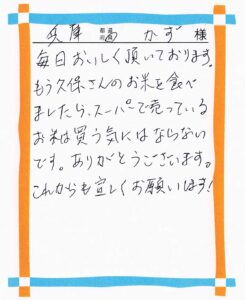 兵庫 都道府県 かず 様
毎日おいしく頂いております。
もう久保さんのお米を食べ
ましたら、スーパーで売っている
お米は買う気にはならない
です。ありがとうございます。
これからも宜しくお願いします!